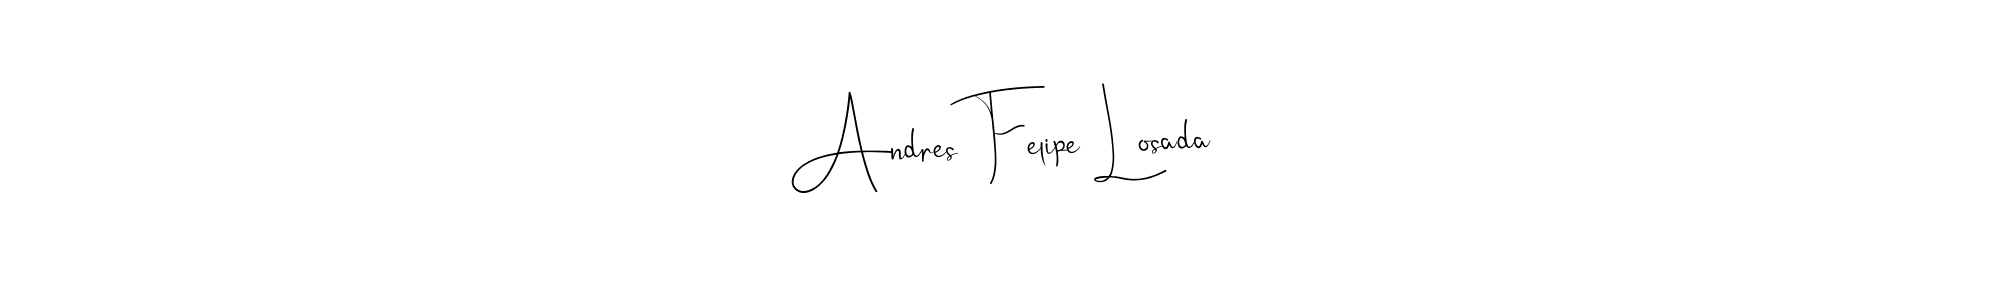 Andres Felipe Losada